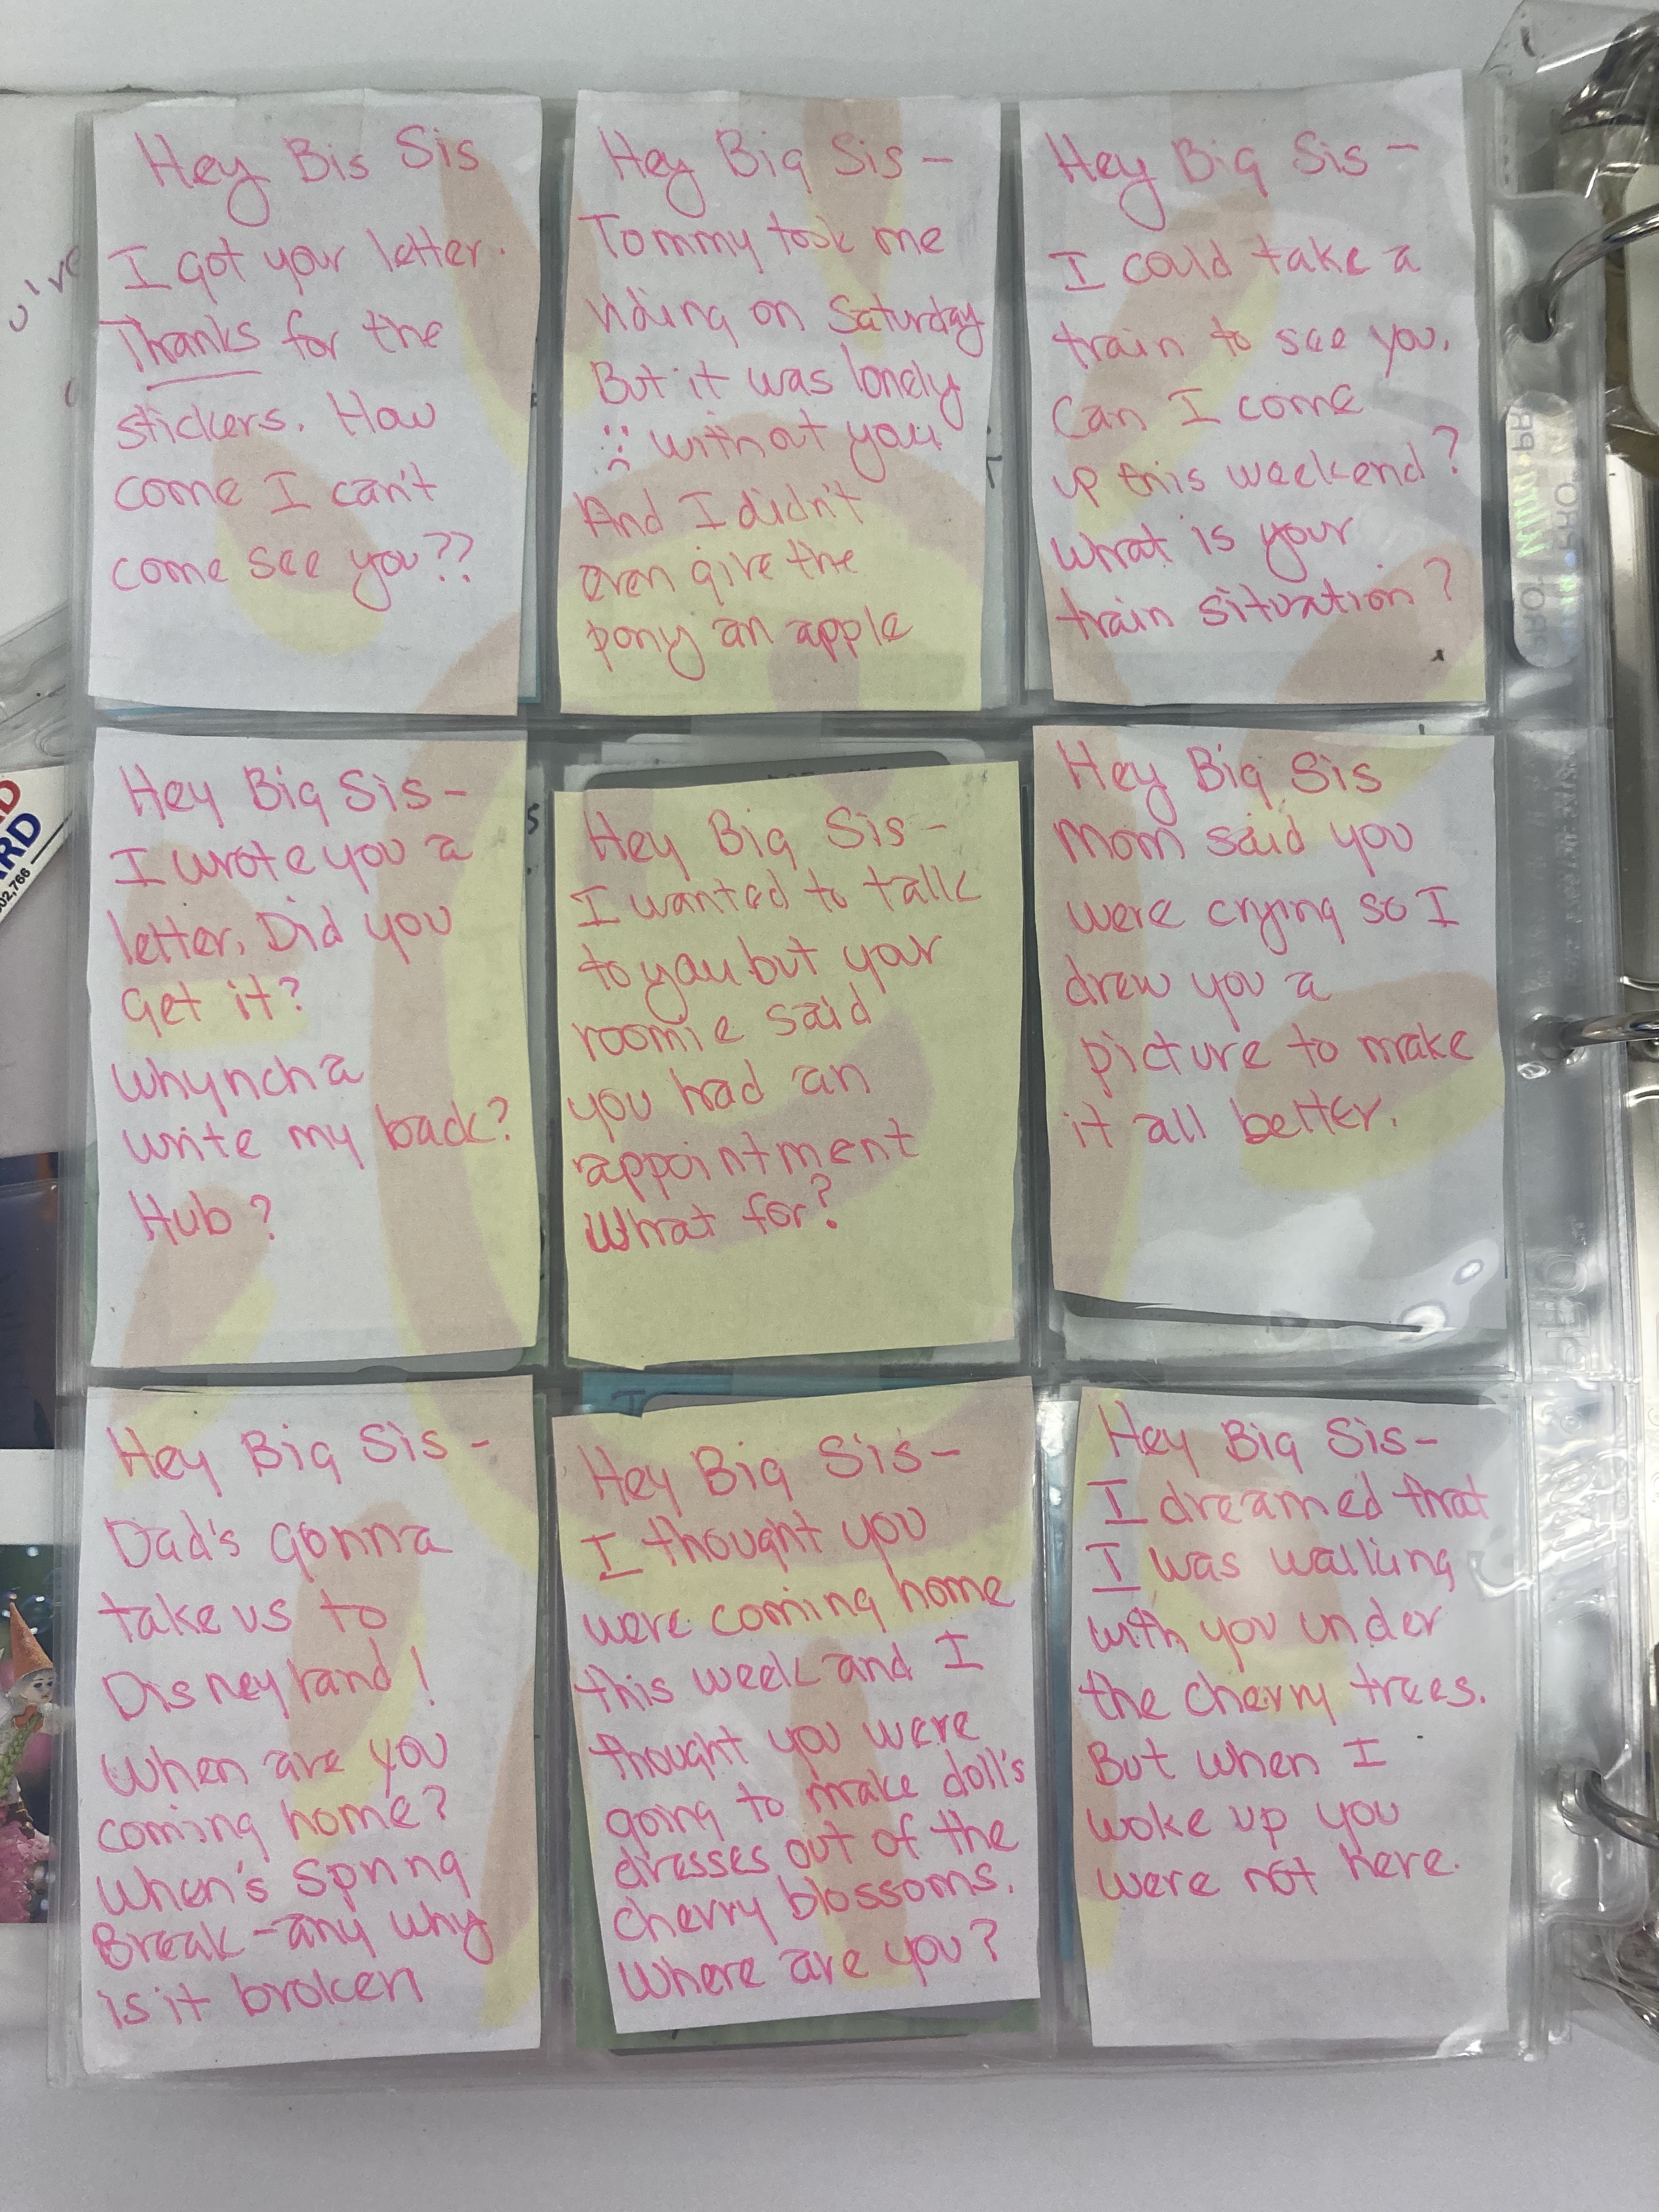 Hey Bis Sis
I got your letter.
Thanks for the
stickers. How
come I can't
come see you??
Hey Big Sis -
Tommy took me
riding on Saturday
But it was lonely
:( without you
And I didn't
even give the
pony an apple
Hey Big Sis -
I could take a
train to see you.
Can I come
up this weekend?
What is your
train situation?
Hey Big Sis -
I wrote you a
letter. Did you
get it?
Whyncha
write my back?
Hub?
Hey Big Sis -
I wanted to talk
to you but your
roomie said
you had an
appointment
What for?
Hey Big Sis
Mom said you
were crying so I
drew you a
picture to make
it all better.
Hey Big Sis -
Dad's gonna
take us to
Disneyland!
When are you
coming home?
When's Spring
Break - any why
is it broken
Hey Big Sis -
I thought you
were coming home
this week and I
thought you were
going to make doll's
dresses out of the
cherry blossoms.
Where are you?
Hey Big Sis -
I dreamed that
I was walking
with you under
the cherry trees.
But when I
woke up you
were not here.